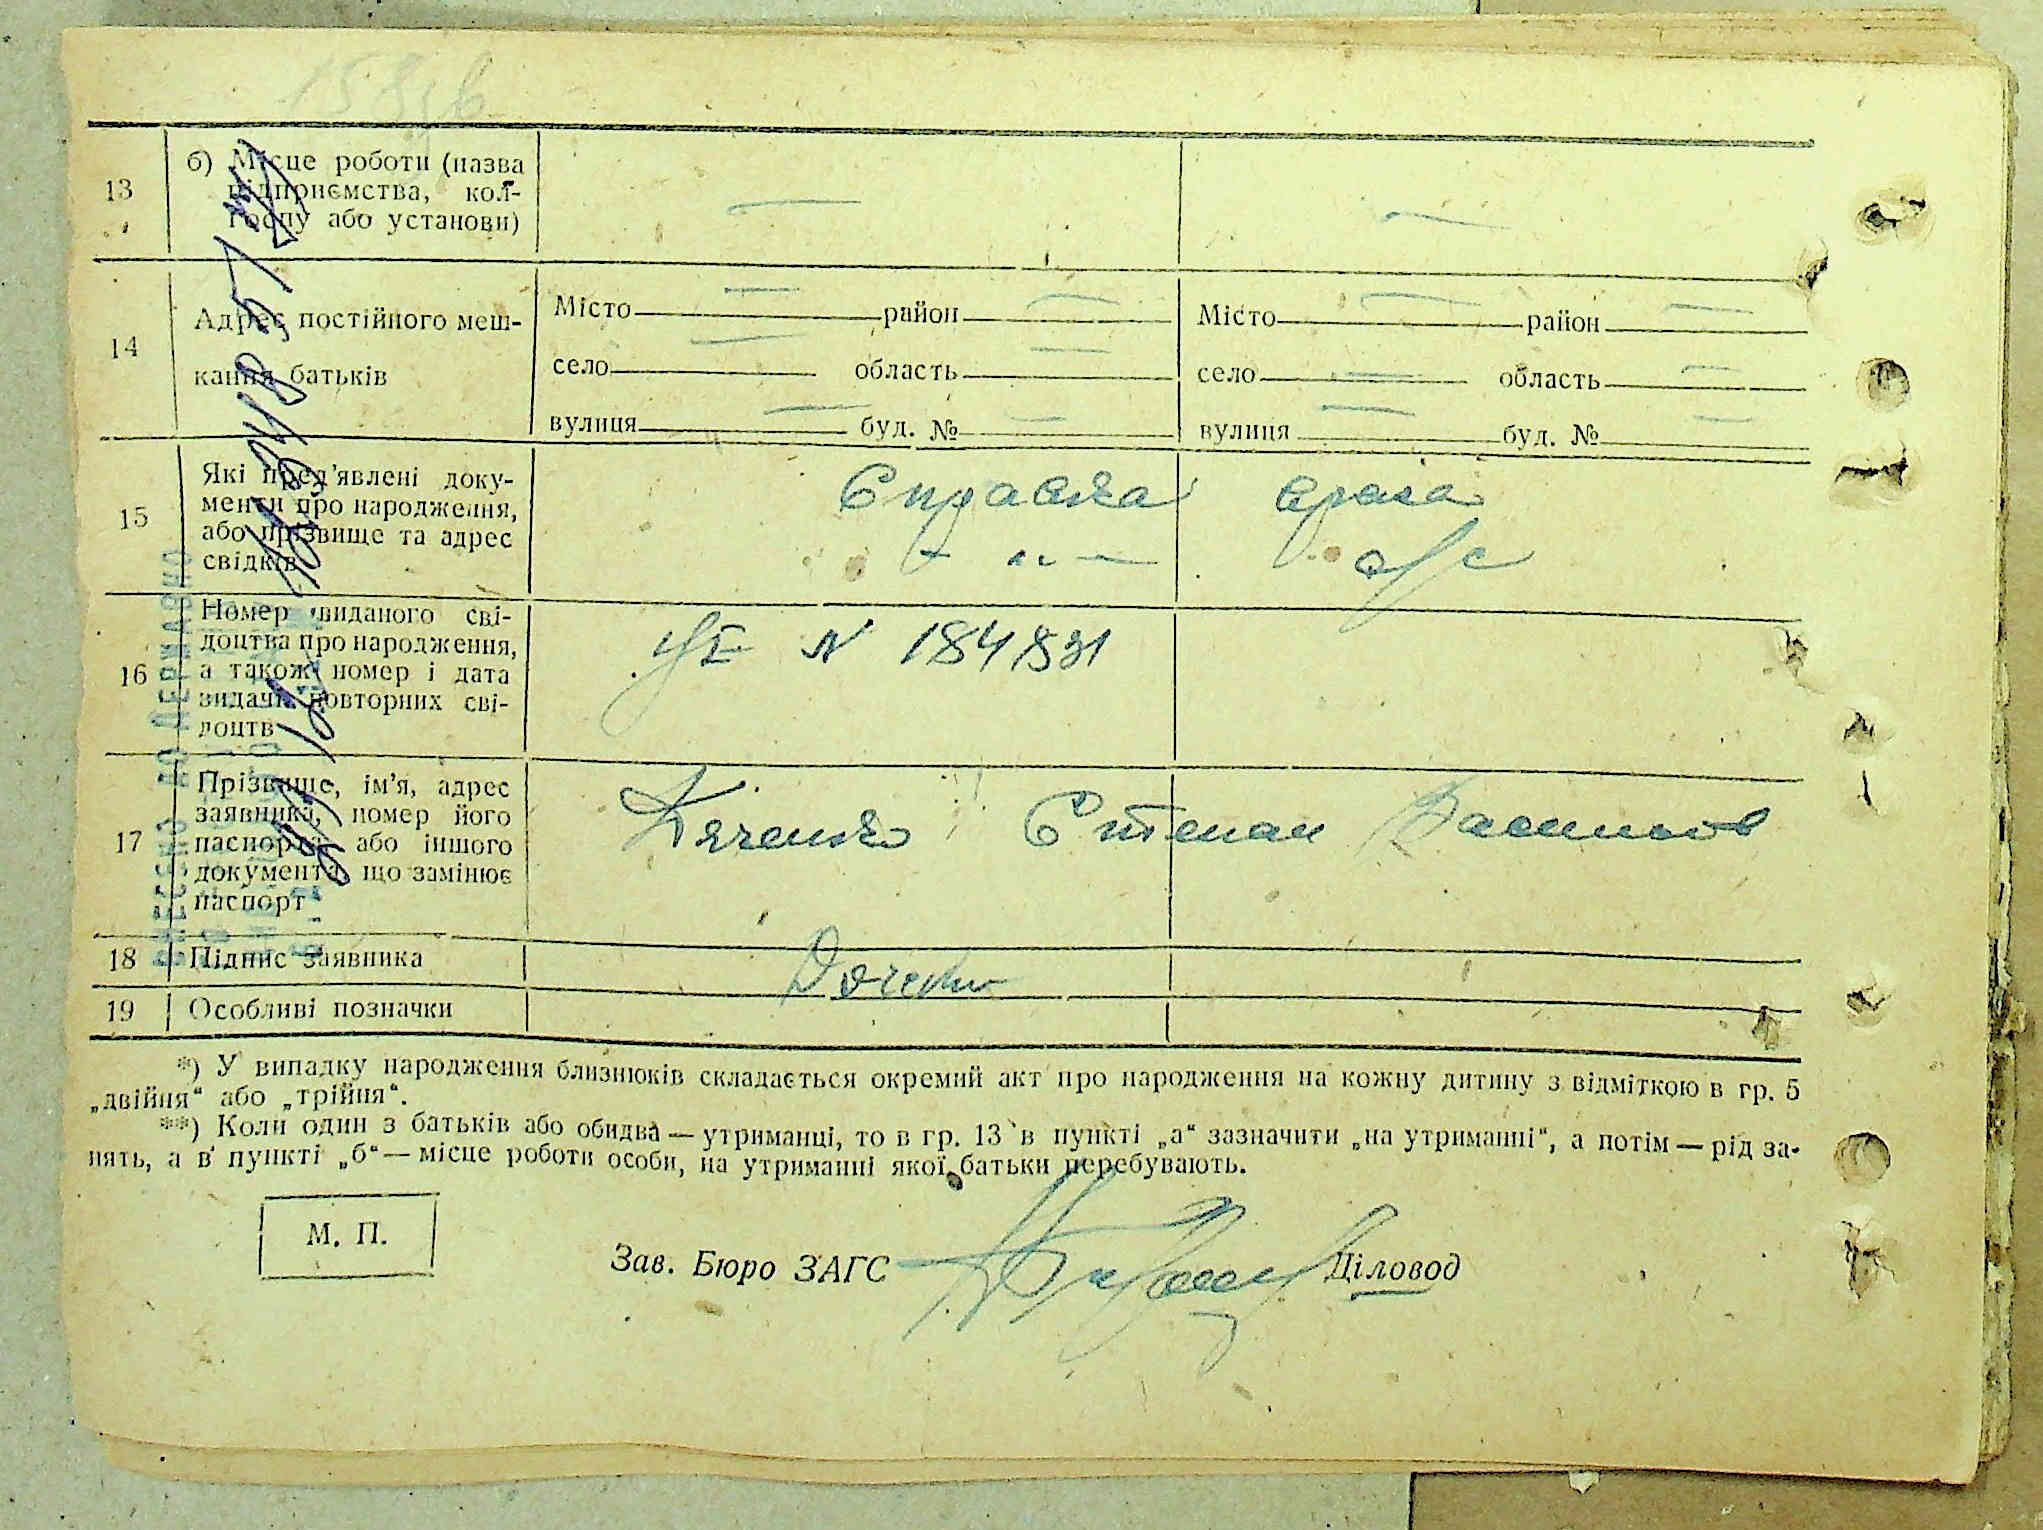 13 б) Місце роботи (назва
підприємства, кол-
госпу або установи)
14 Адрес постійного меш-
кання батьків
Місто район Місто район
село область село область
вулиця буд. № вулиця буд. №
15 Які пред'явлені доку-
менти про народження,
або прізвище та адрес
свідків
Справка врача
16 Номер виданого сві-
доцтва про народження,
а також номер і дата
видачі повторних сві-
доцтв
N 184831
17 Прізвище, ім'я, адрес
заявника, номер його
паспорта або іншого
документа, що замінює
паспорт
Степан Васильов
18 Підпис заявника
19 Особливі позначки
*) У випадку народження близнюків складається окремий акт про народження на кожну дитину з відміткою в гр. 5
„двійня“ або „трійня“.
**) Коли один з батьків або обидва — утриманці, то в гр. 13 в пункті „а“ зазначити „на утриманні“, а потім — рід за-
нять, а в пункті „б“ — місце роботи особи, на утриманні якої батьки перебувають.
М. П.
Зав. Бюро ЗАГС Діловод